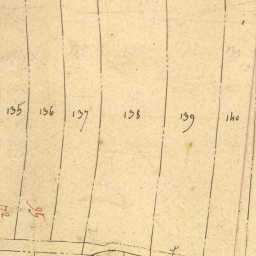 135 136 137 138 139 140